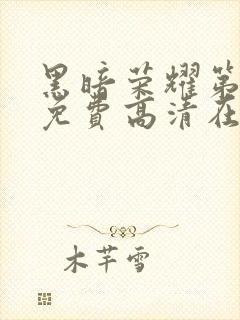 黑暗荣耀第
免费高清在
木芊雪